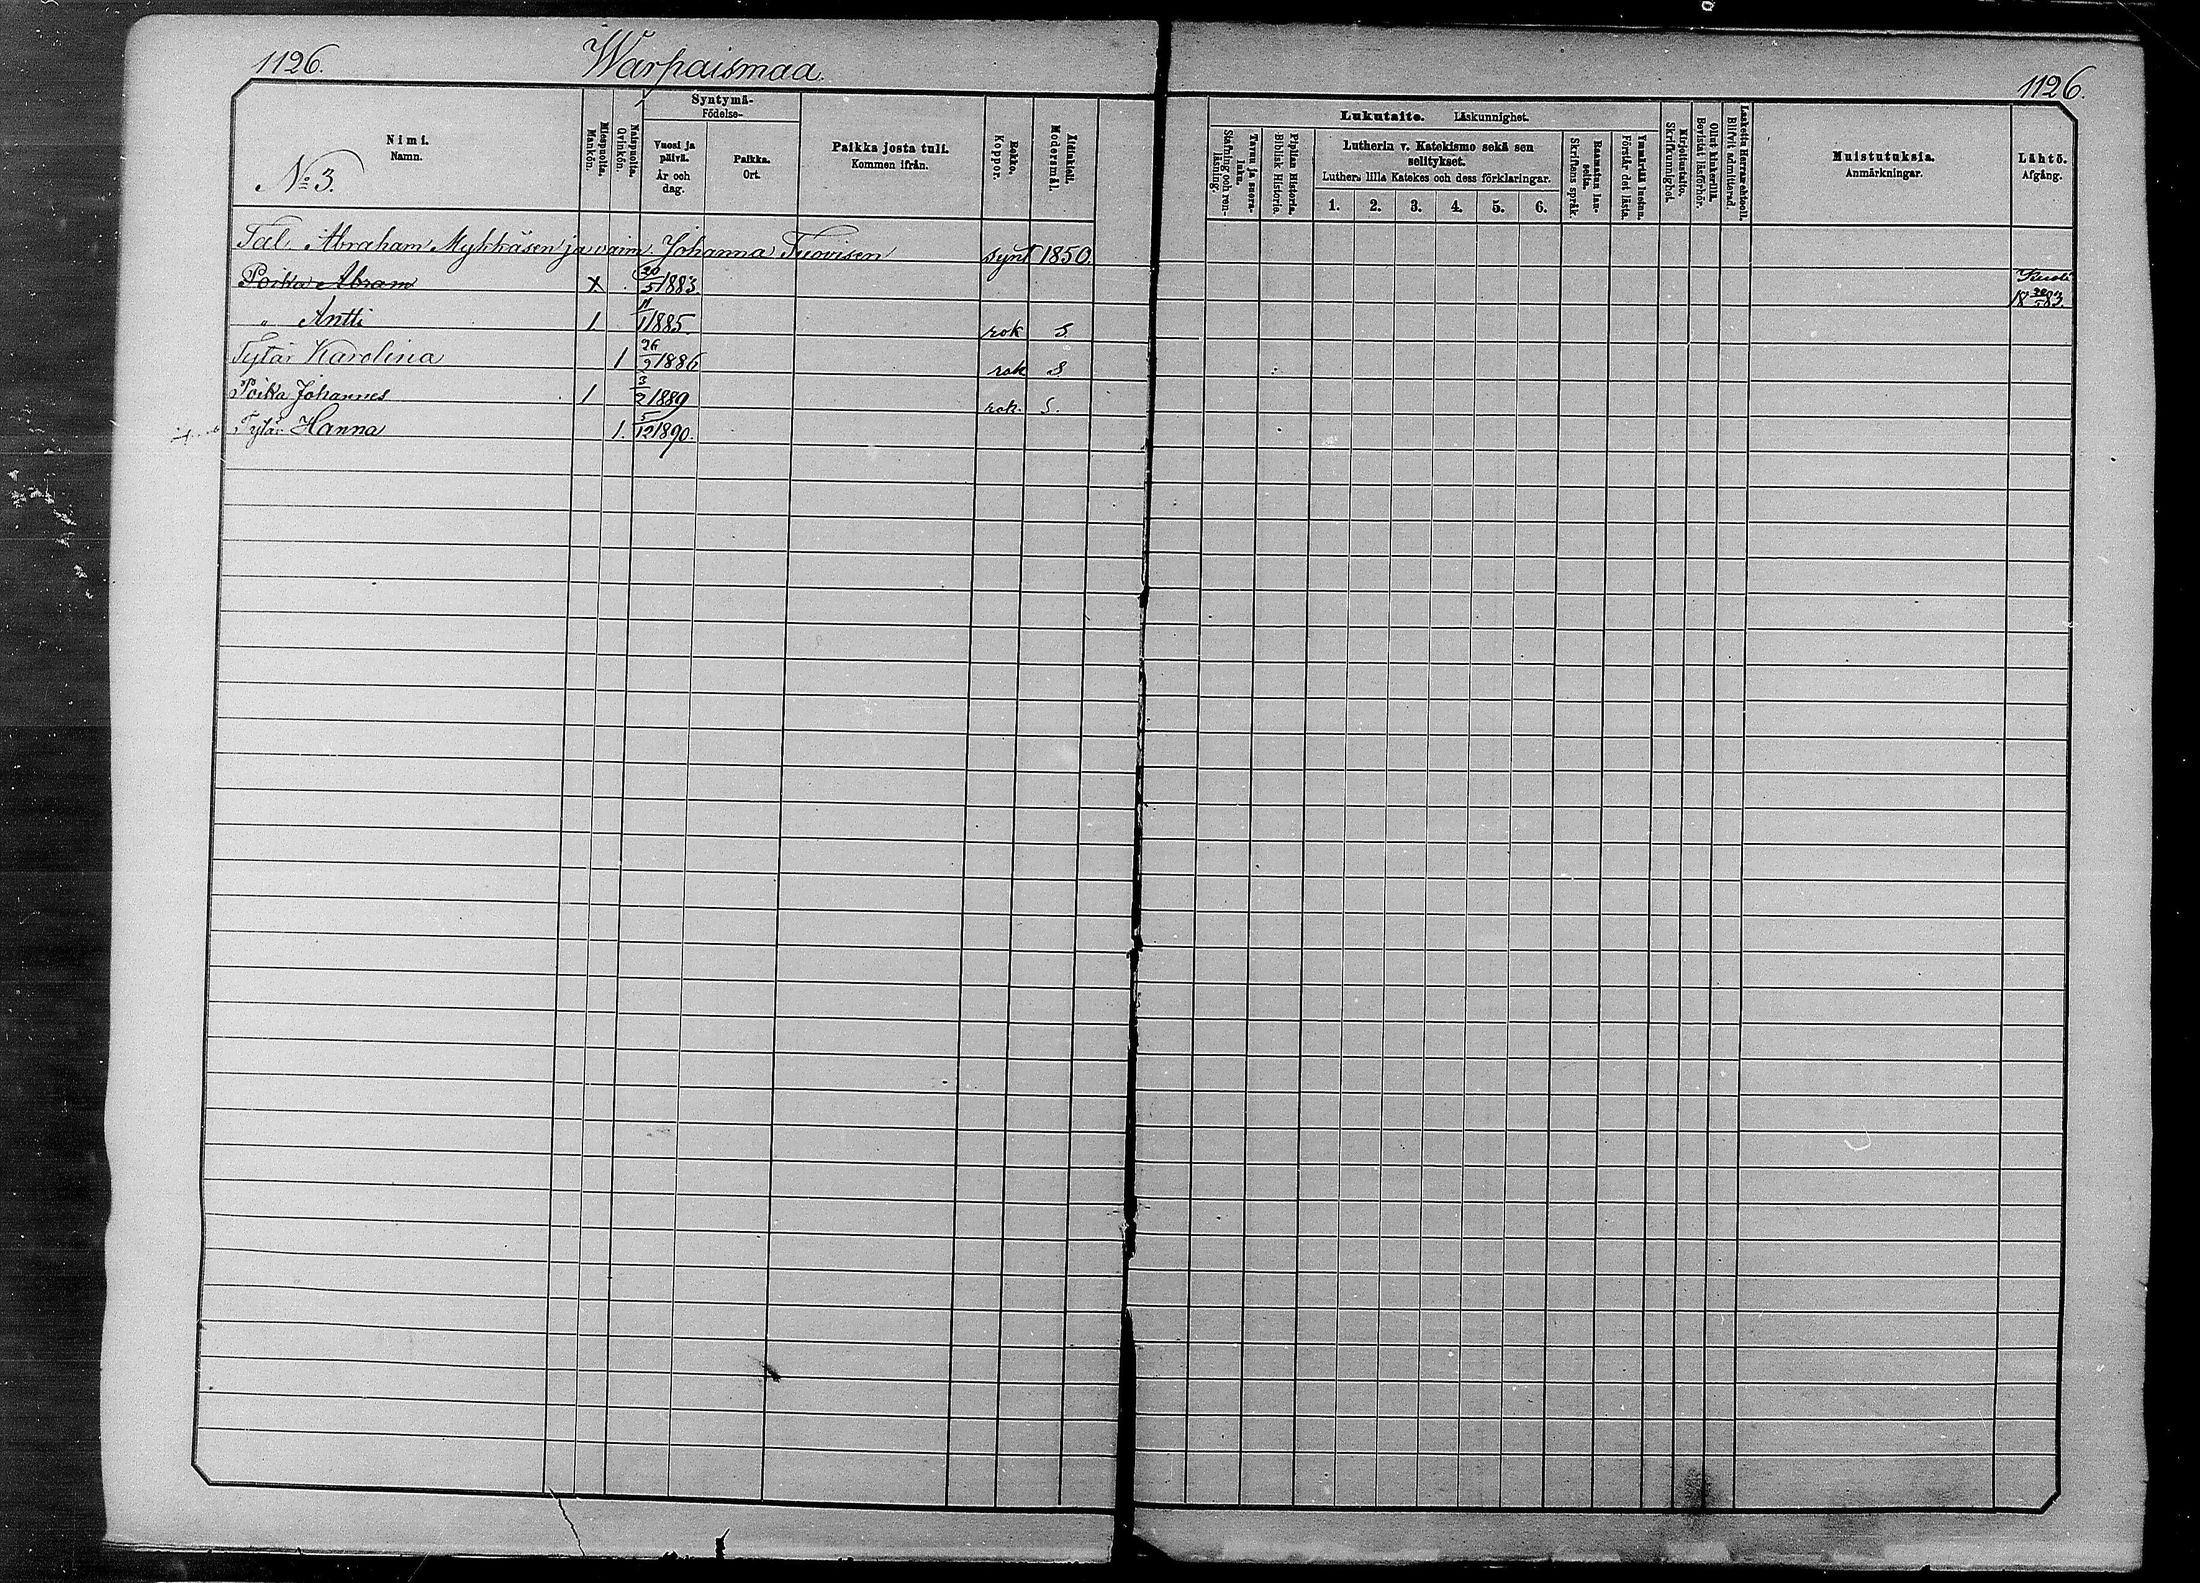 1126.
Warpaismaa.
1126.
Nimi.
Namn.
No 3.
Miespuolia.
Mankön.
Naispuolia.
Qvinkön.
Syntymä-
Födelse-
Vuosi ja
päivä.
År och
dag.
Paikka.
Ort.
Paikka josta tuli.
Kommen ifrån.
Rokko.
Koppor.
Äidinkieli.
Modersmål.
Lukutaito. Läskunnighet.
Tavuu ja suora-
luku.
Stafning och ren-
läsning.
Piplian Historia.
Biblisk Historie.
Lutherin v. Katekismo sekä sen
selitykset.
Luthers lilla Katekes och dess förklaringar.
1. 2. 3. 4. 5. 6.
Raamatun lau-
seita.
Skriftens språk.
Ymmärtää luetun.
Förstår det lästa.
Kirjoitustaito.
Skrifkunnighet.
Ollut kinkerillä.
Bevistat läsförhör.
Laskettu Herran ehtool.
Blifvit admitterad.
Muistutuksia.
Anmärkningar.
Lähtö.
Afgång.
Tal. Abraham Mykkäsen ja vaim. Johanna Tuovisen synt 1850.
Poika Abram X 30/5 1883. Kuoli 18 30/5 83.
" Antti 1 11/1 1885. rok S
Tytär Karolina 1 26/9 1886 rok S
Poika Johannes 1 3/2 1889 rok. S.
Tytär Hanna 1. 5/12 1890.